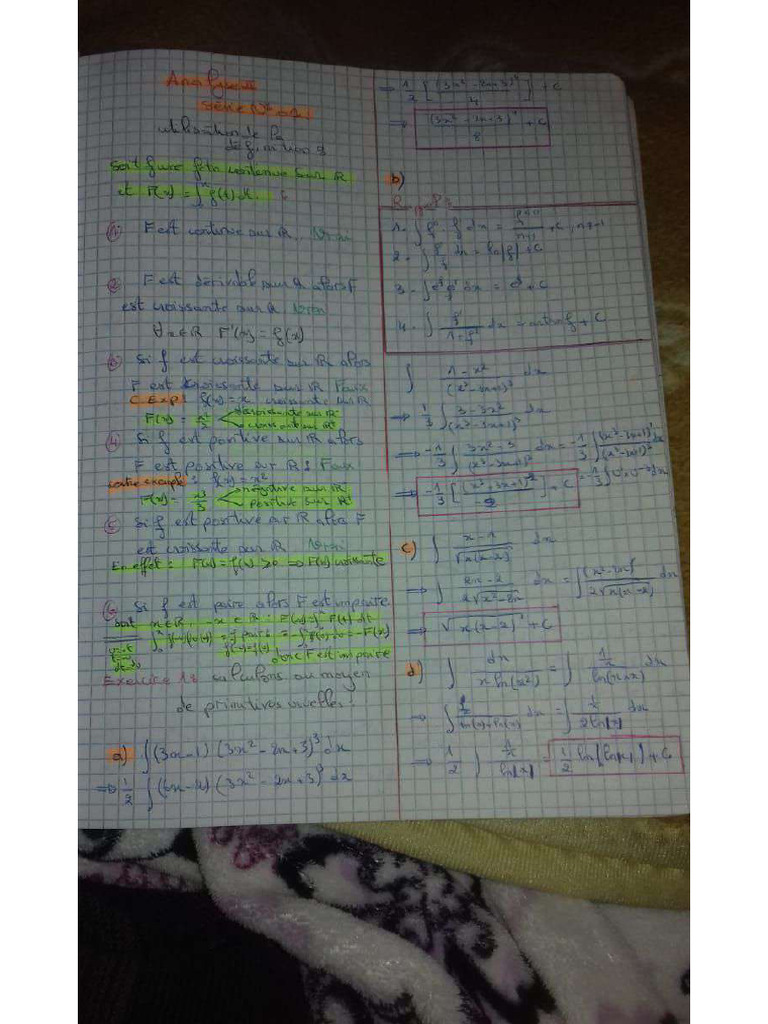 Analyse II
Série N° 01
utilisation de la
définition
Soit f une fct continue sur ℝ
et F(x) = ∫₀ˣ f(t) dt. :
① F est continue sur ℝ. Vrai
② F est dérivable sur ℝ alors F
est croissante sur ℝ Vrai
∀x∈ℝ F'(x) = f(x)
③ Si f est croissante sur ℝ alors
F est croissante sur ℝ Faux
C. Exp: f(x) = x croissante sur ℝ
F(x) = x²/2 < décroissante sur ℝ⁻
croissante sur ℝ⁺
④ Si f est positive sur ℝ alors
F est positive sur ℝ : Faux
contre exemple : f(x) = x²
F(x) = x³/3 < négative sur ℝ⁻
positive sur ℝ⁺
⑤ Si f est positive sur ℝ alors F
est croissante sur ℝ Vrai
En effet : F'(x) = f(x) ≥ 0 ⇒ F(x) croissante
⑥ Si f est paire alors F est impaire
soit x∈ℝ, -x∈ℝ : F(-x) = ∫₀⁻ˣ f(t) dt
donc F est impaire
Exercice 1: calculons au moyen
de primitives usuelles :
a) ∫(3x-1)(3x²-2x+3)³ dx
⇒ 1/2 ∫(6x-2)(3x²-2x+3)³ dx
⇒ 1/2 [(3x²-2x+3)⁴/4] + C
⇒ (3x²-2x+3)⁴/8 + C
b)
1- ∫ f' · fⁿ dx = fⁿ⁺¹/(n+1) + C, n≠-1
2- ∫ f'/f dx = ln|f| + C
3- ∫ eᶠ f' dx = eᶠ + C
4- ∫ f'/(1+f²) dx = arctan f + C
∫ (1-x²)/(x³-3x+1)³ dx
⇒ 1/3 ∫ (3-3x²)/(x³-3x+1)³ dx
⇒ -1/3 ∫ (3x²-3)/(x³-3x+1)³ dx = -1/3 ∫ (x³-3x+1)'/(x³-3x+1)³ dx
⇒ -1/3 [(x³-3x+1)⁻²/-2] + C
c) ∫ (x-1)/√(x(x-2)) dx
⇒ ∫ (2x-2)/(2√(x²-2x)) dx = ∫ (x²-2x)'/(2√(x(x-2))) dx
⇒ √(x(x-2)) + C
d) ∫ dx/(x ln(x²)) = ∫ (1/x)/ln(x×x) dx
⇒ ∫ (1/x)/(ln(x)+ln(x)) dx = ∫ (1/x)/(2 ln(x)) dx
⇒ 1/2 ∫ (1/x)/ln|x| = 1/2 ln|ln|x|| + C